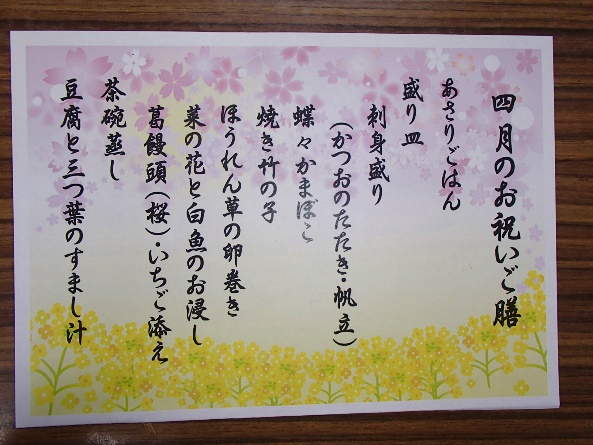 四月のお祝いご膳
あさりごはん
盛り皿
刺身盛り
(かつおのたたき・帆立)
蝶々かまぼこ
焼き竹の子
ほうれん草の卵巻き
菜の花と白魚のお浸し
葛饅頭(桜)・いちご添え
茶碗蒸し
豆腐と三つ葉のすまし汁